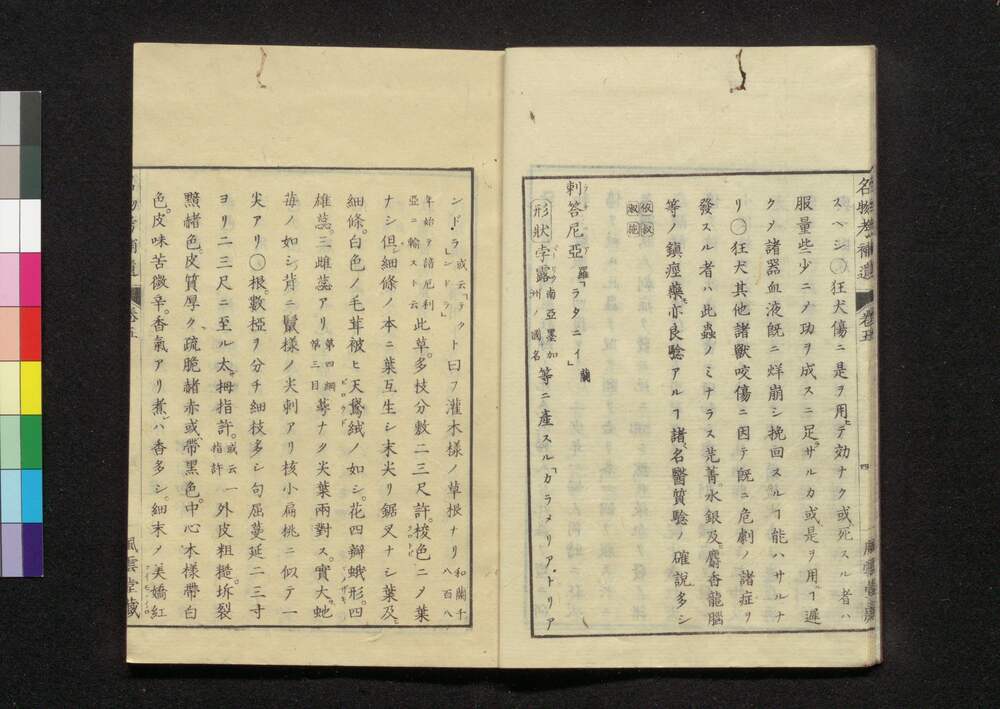 名物考補遺 卷五 四 風雲堂藏
スベシ○狂犬傷ニ是ヲ用テ効ナク或死スル者ハ
服量些少ニメ功ヲ成スニ足ザルカ或是ヲ用ヿ遲
クメ諸器血液既ニ烊崩シ挽回スルヿ能ハサルナ
リ○狂犬其他諸獸咬傷ニ因テ既ニ危劇ノ諸症ヲ
發スル者ハ此蟲ノミナラス芫菁水銀及麝香龍腦
等ノ鎮痙藥亦良驗アルヿ諸名醫質驗ノ確說多シ
刺答尼亞 羅「ラタニーイ」蘭
形狀 孛露 南亞墨加州ノ國名 等ニ產スル「カラメリア、トリア
ンドラ」 或云「テクトンドラ」 ト曰フ灌木樣ノ草根ナリ 和蘭千八百八年始ヲ諳厄利亞ニ輸スト云 此草多枝分數二三尺許梭色ニメ葉
ナシ但細條ノ本ニ葉互生シ末尖リ鋸叉ナシ葉及
細條白色ノ毛茸被ヒ天鵞絨ノ如シ花四瓣蛾形四
雄蕊三雌蕊アリ 第四綱第三目 萼ナク尖葉兩對ス實大虵
苺ノ如シ背ニ鬣樣ノ尖刺アリ核小扁桃ニ似テ一
尖アリ○根數椏ヲ分チ細枝多シ句屈蔓延二三寸
ヨリ二三尺ニ至ル太拇指許 或云一指許 外皮粗糙坼裂
黯赭色皮質厚ク疏脆赭赤或帶黑色中心木樣帶白
色皮味苦微辛香氣アリ煮ハ香多シ細末ノ美嬌紅
卷五
風雲堂藏